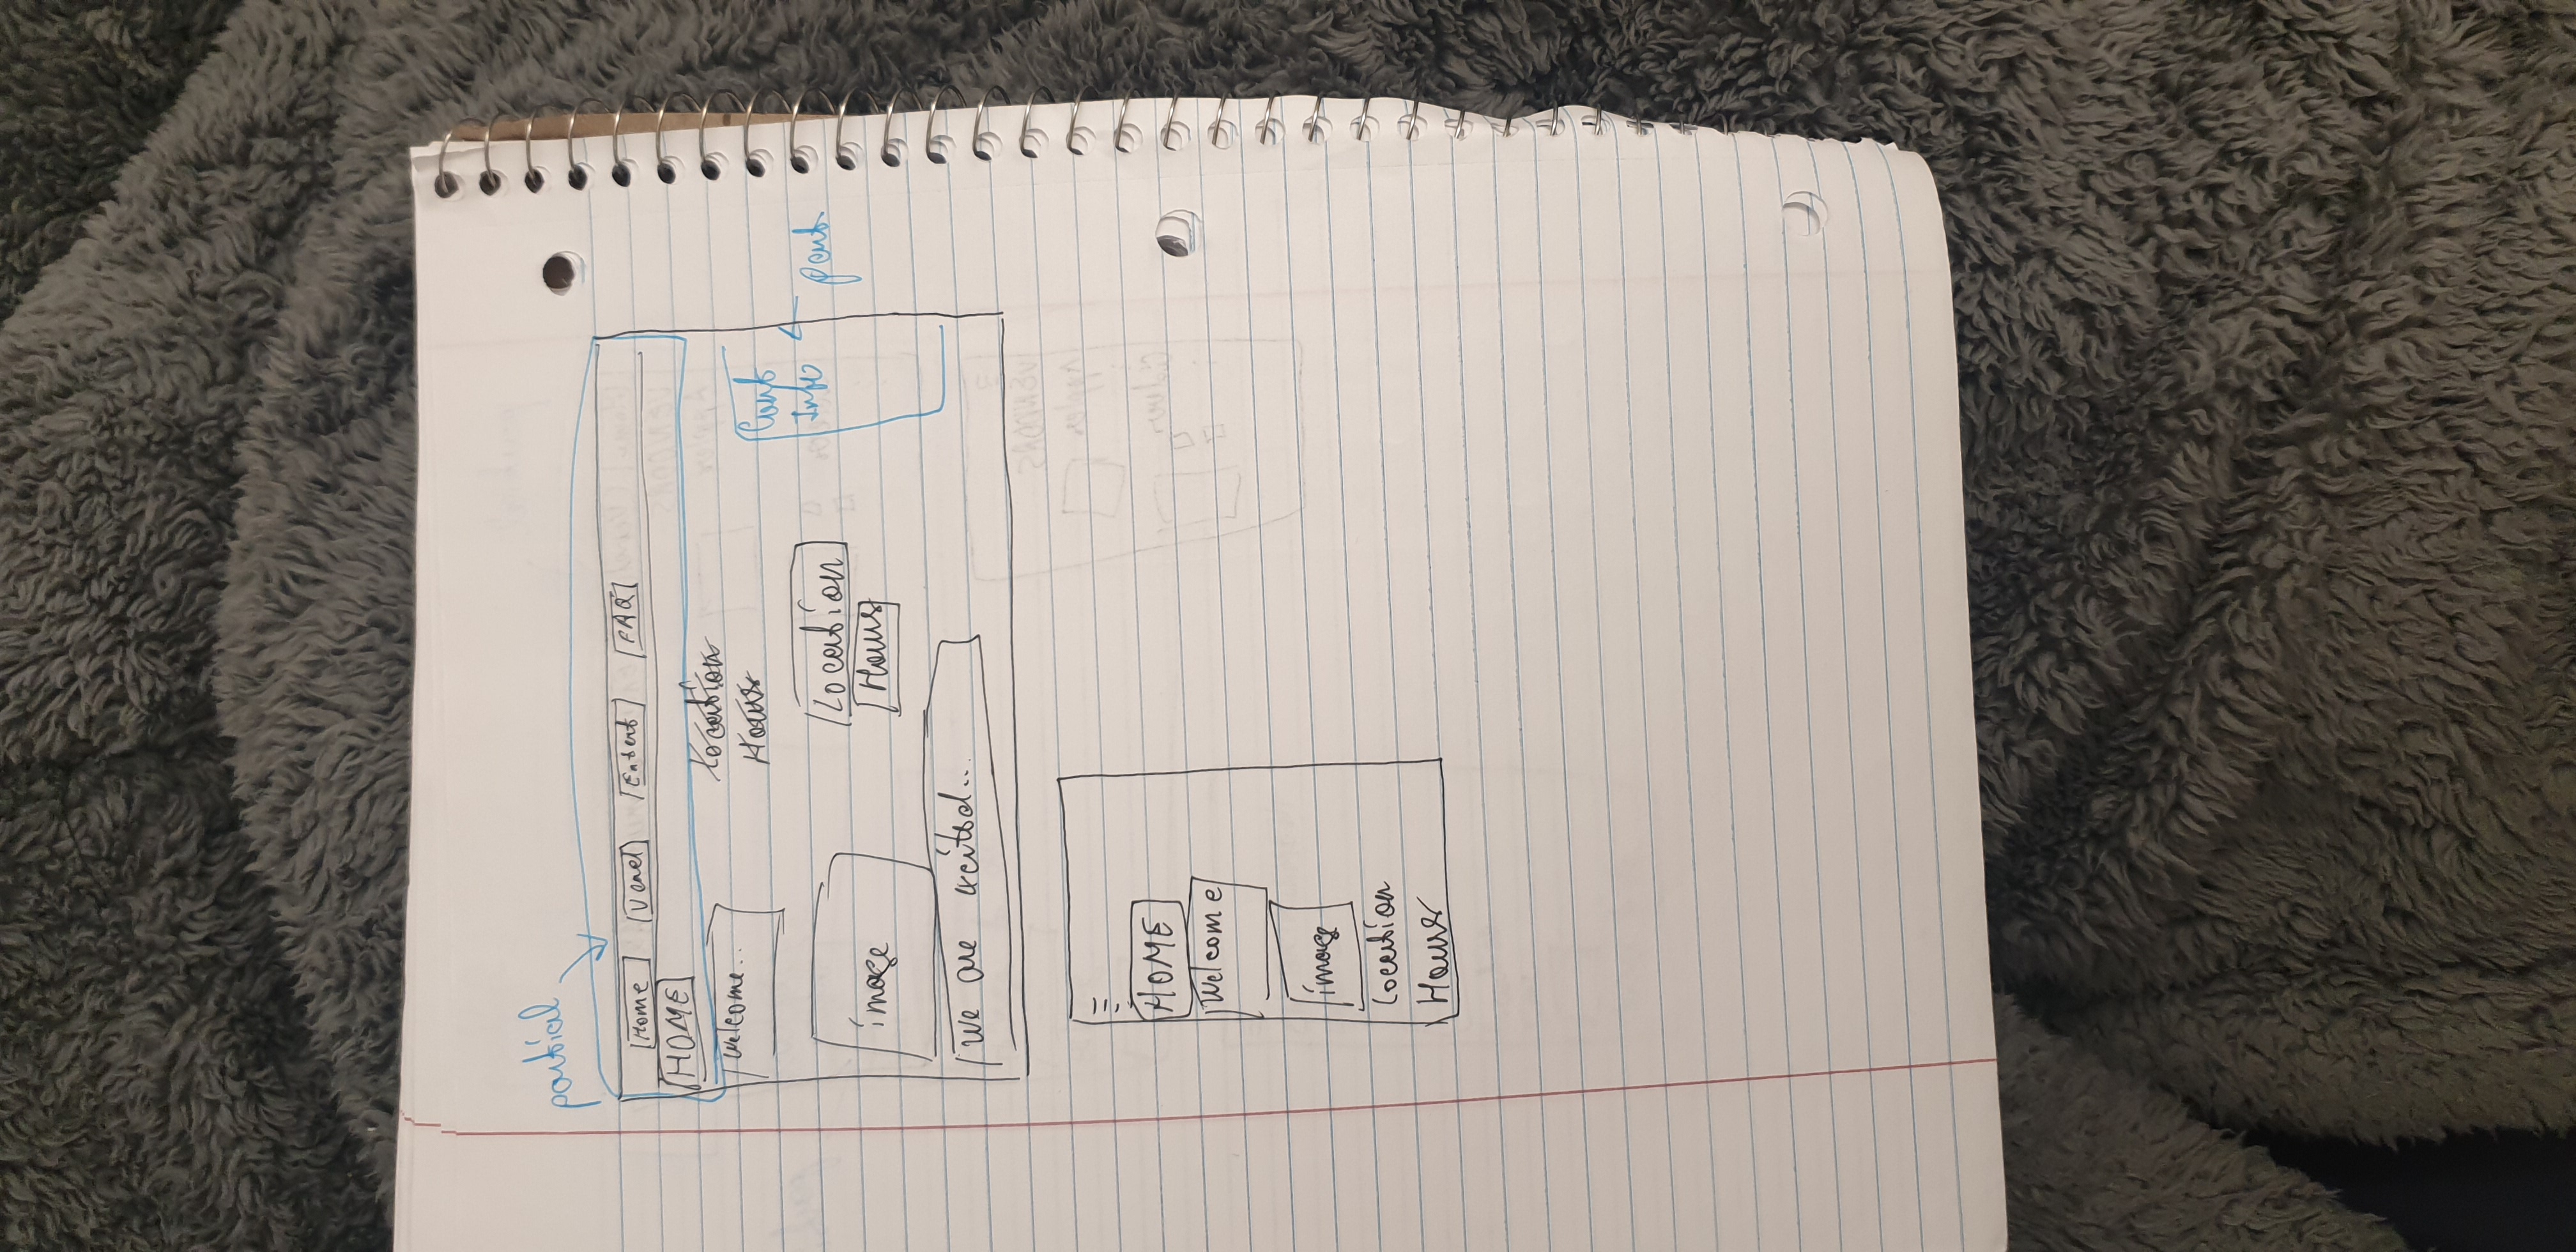 partial
Home Vend Entert FAQ
HOME
Welcome.. Location
Hours
Cont
Info part
Location
image Hours
We are excited...
HOME
Welcome
image
Location
Hours